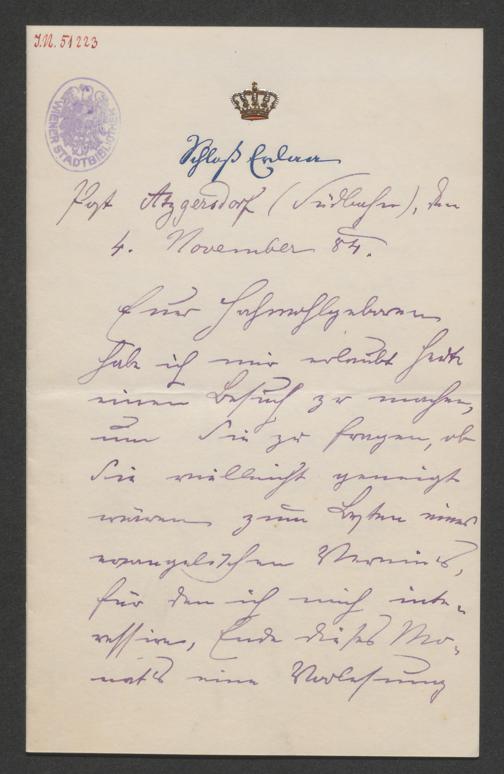 J.N. 51223
WIENER STADTBIBLIOTHEK
Schloß Erlaa
Post Atzgersdorf (Südbahn), den
4. November 84.
Euer Hochwohlgeboren
habe ich mir erlaubt heute
einen Besuch zu machen,
um Sie zu fragen, ob
Sie vielleicht geneigt
wären zum Besten eines
evangelischen Vereins,
für den ich mich inte-
ressire, Ende dieses Mo-
nats eine Vorlesung